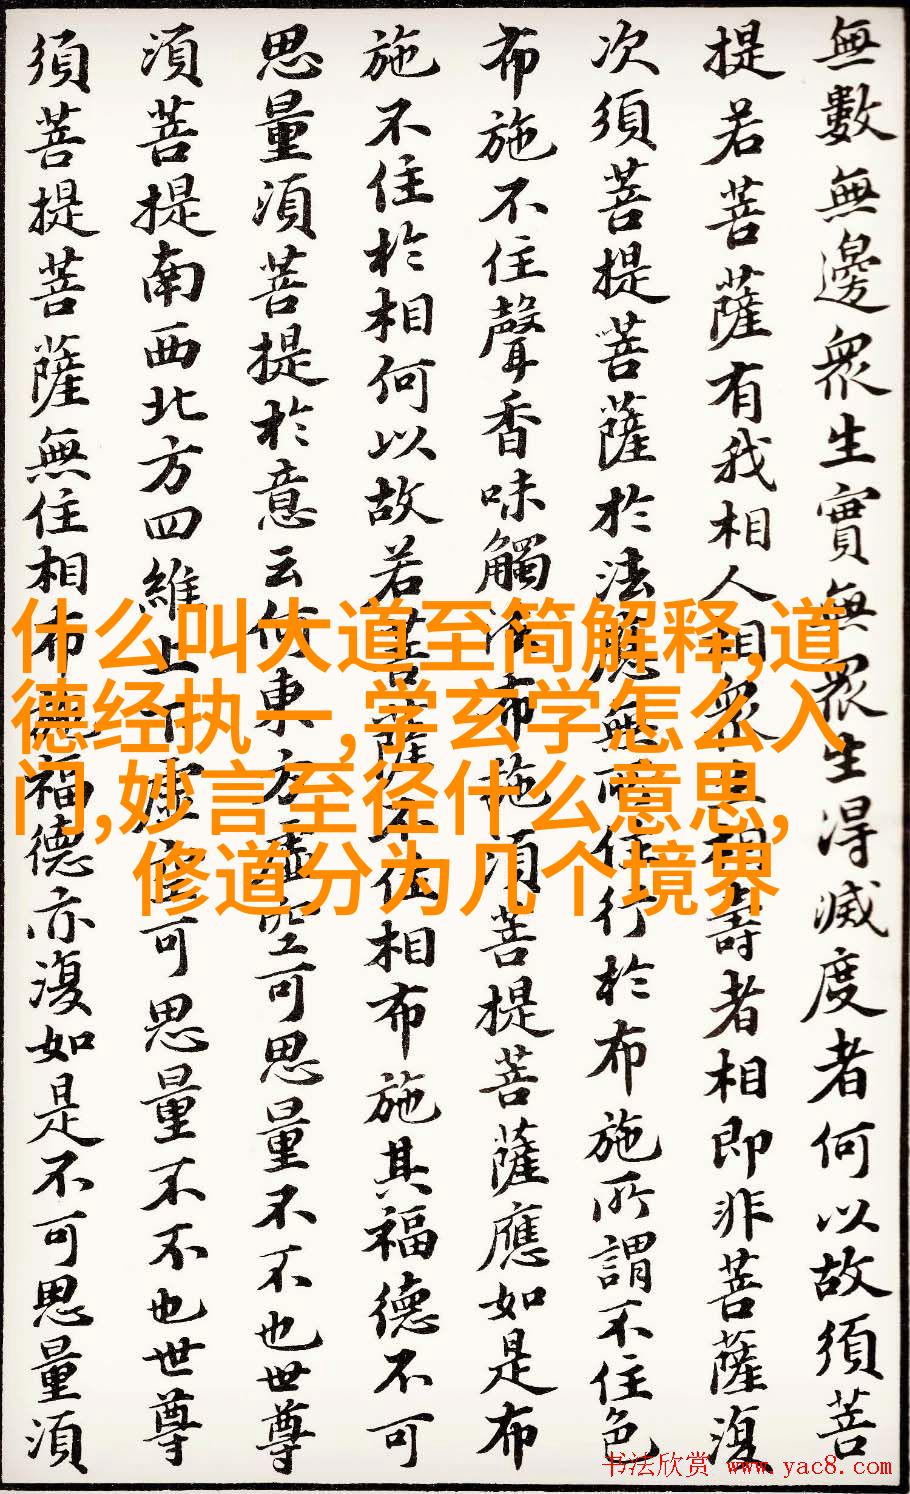 無數無邊衆生實無衆生得滅度者何以故須菩
提若菩薩有我相人相衆生相壽者相即非菩薩復
次須菩提菩薩於法應無所住行於布施所謂不住色
布施不住聲香味觸法布施須菩提菩薩應如是布
施不住於相何以故若菩薩不住相布施其福德不可
思量須菩提於意云何東方虛空可思量不不也世尊
須菩提南西北方四維上下虛空可思量不不也世尊
須菩提菩薩無住相布施福德亦復如是不可思量須
什么叫大道至简解释,道
德经执一,学玄学怎么入
门,妙言至径什么意思,
修道分为几个境界
书法欣赏 www.yac8.com